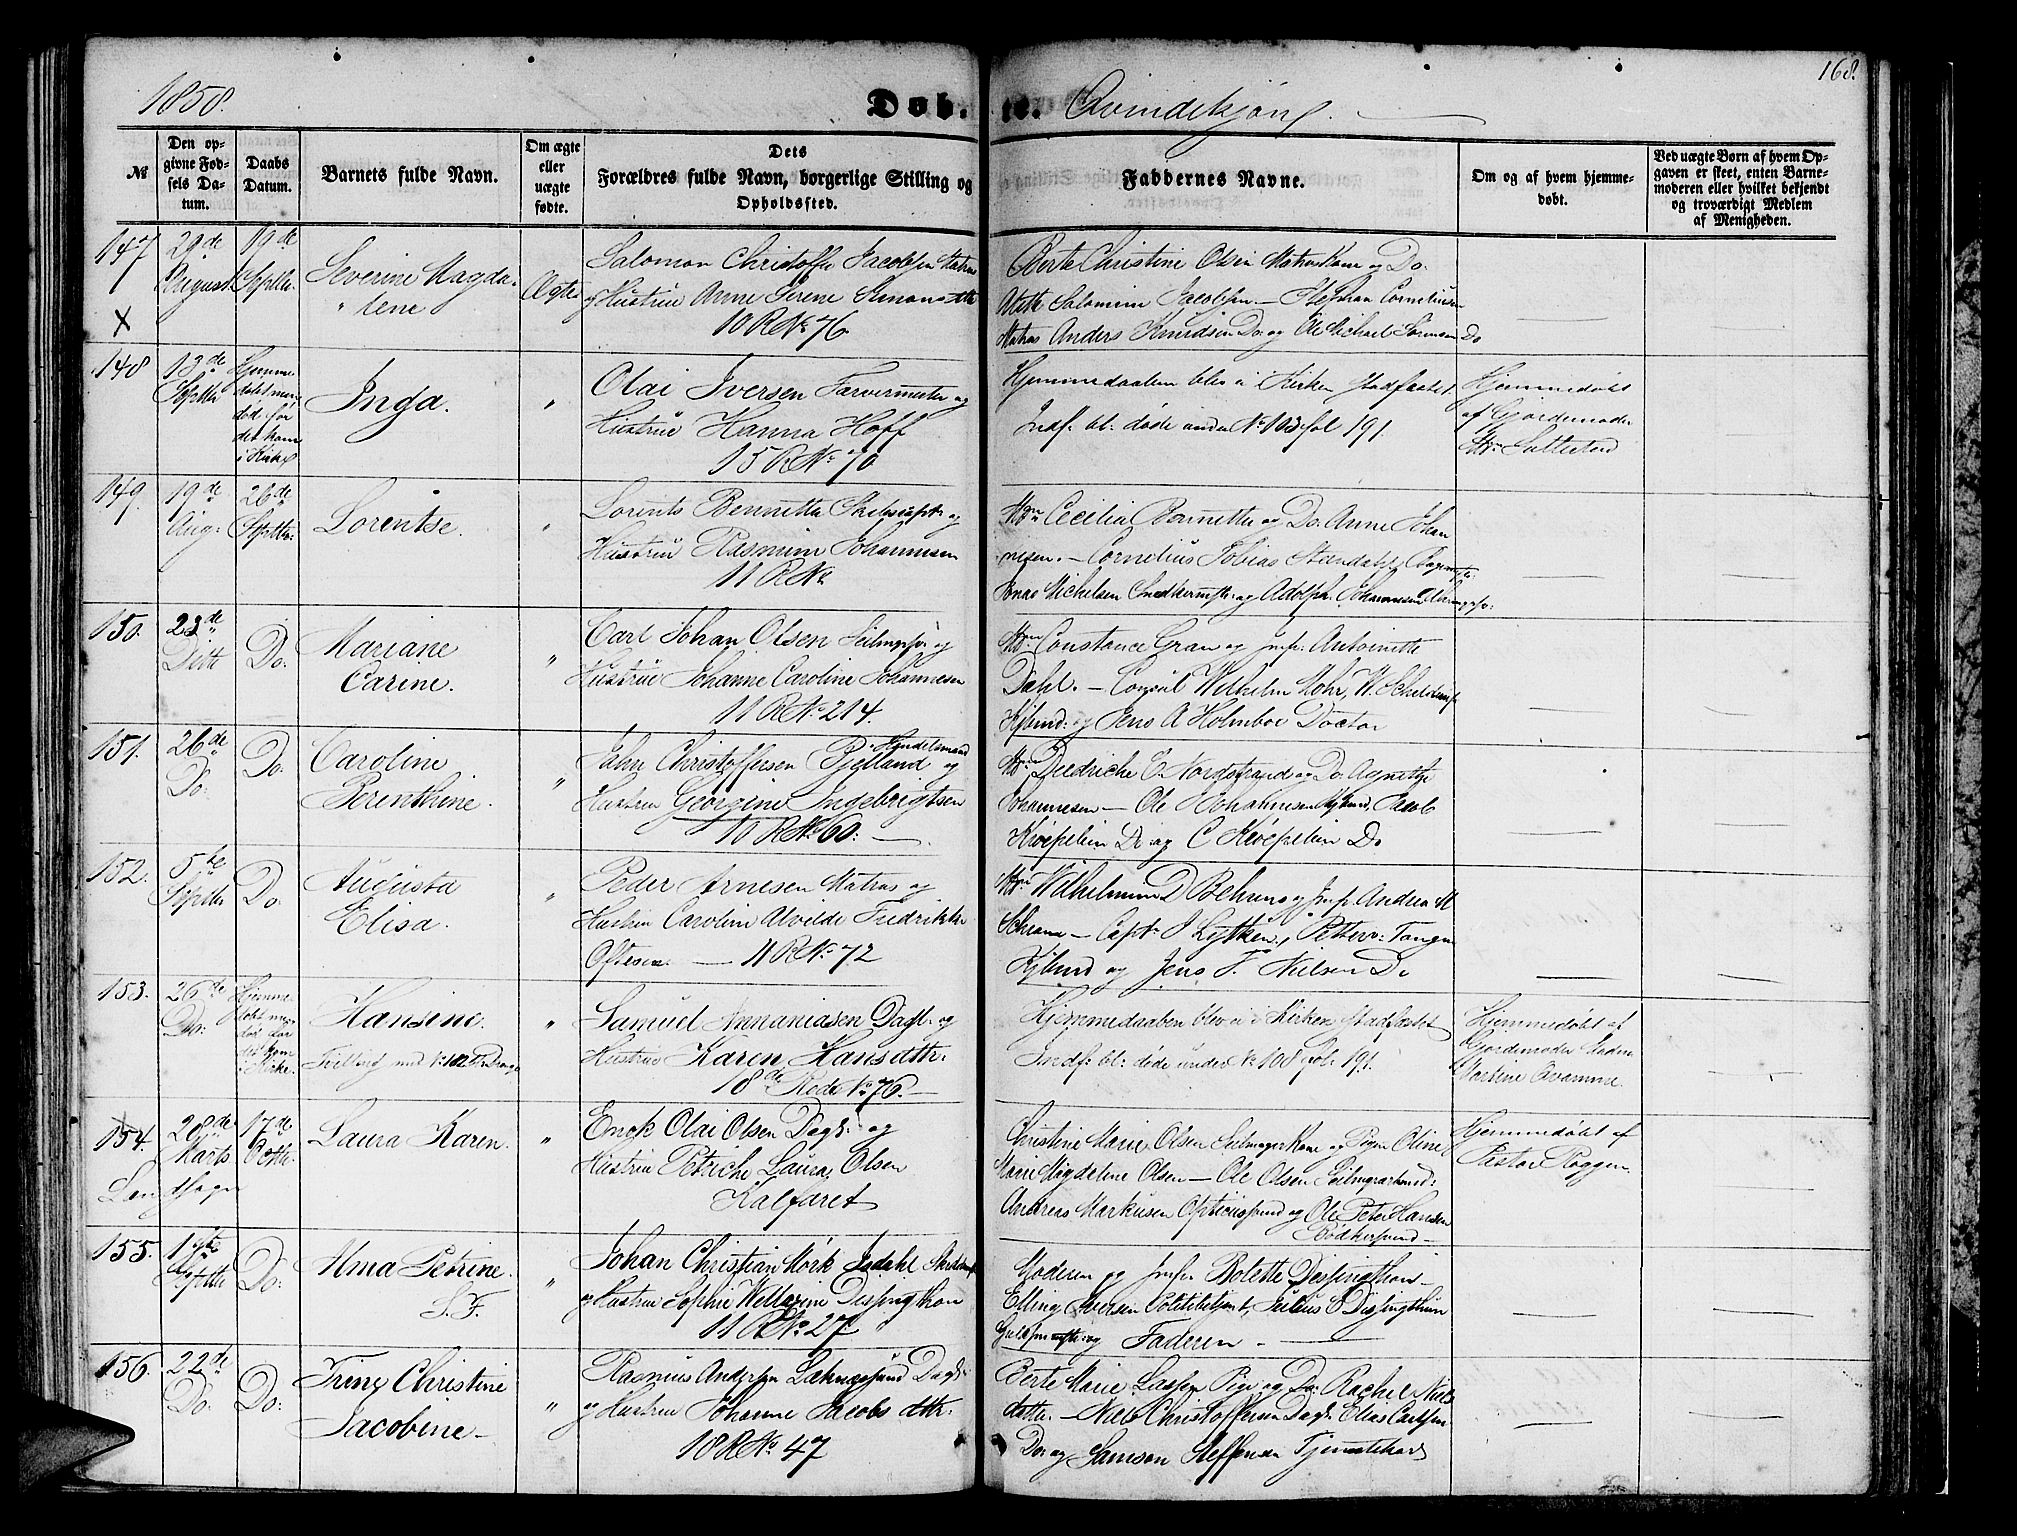 1858.
Døbte.
Qvindekjøn.
168.
№
Den op-
givne Fød-
sels Da-
tum.
Daabs
Datum.
Barnets fulde Navn.
Om ægte
eller
uægte
fødte.
Dets
Forældres fulde Navn, borgerlige Stilling og
Opholdssted.
Faddernes Navne.
Om og af hvem hjemme-
døbt.
Ved uægte Børn af hvem Op-
gaven er skeet, enten Barne-
moderen eller hvilket bekjendt
og troværdigt Medlem
af Menigheden.
147
29de
August
19de
Septbr
Severine Magda-
lene
Ægte
Salomon Christoffer Jacobsen Matros
og Hustrue Anne Serene Simonsdtr
10 R No 76
Berte Christine Olsen Matros Kone og Do
Alette Salomine Jacobsen – Stephan Cornelius
Matros Anders Knudsen Do og Ole Michael Sørensen Do
148
13de
Septbr
Hjemme-
døbt men
død før
det kom
i Kirke
Inga.
"
Olai Iversen Farvermester og
Hustrue Hanna Hoff
15 R No 70
Hjemmedaaben blev ei i Kirken stadfæstet
Indf: bl: døde under No 103 fol 191.
Hjemmedøbt
af Gjordemoder
149.
19de
Aug:
26de
Septbr:
Lorentse.
"
Lorents Bennetter og
Hustrue Rasmine Johannesen
11 R No
Cecilia Bennetter og Do Anne Johan
nesen. – Cornelius Tobias
Jonas Michelsen Snedkermstr: og Adolph Johannesen
150.
23de
Ditto
Do:
Mariane
Carine.
"
Carl Johan Olsen og
Hustrue Johanne Caroline Johannesen
11 R No 214.
Constance Gran og Jmf: Antoinette
Dahl. – Consul Wilhelm Mohr, W.
og Jens A Holmboe Doctor
151.
26de
Do:
Do:
Caroline
Berenthine.
"
John Christoffersen Pjelland Handelsmand og
Hustrue Georgine Ingebrigtsen
10 R No 60:
Diedriche E. Nordstrand og Do Agnethe
Johannesen – Ole Johannesen Jacob
Krøepelein Do og C Krøepelein Do
152.
5te
Septbr
Do:
Augusta
Elisa.
"
Peder Arnesen Matros og
Hustru Caroline Alvilde Fredrikke
Oftesen. – 11 R No 72
Wilhelmine D Behrens og Jmf: Andrea M
Schram – Capt: J Lytken, Petter Tangen
og Jens F. Nielsen Do
153.
26de
Do:
Hjemme-
døbt men
død før
det kom
i Kirke.
Hansine.
Tvilling med No
"
Samuel Annaniasen Dagl: og
Hustrue Karen Hansdtr:
18de Rode No 76. –
Hjemmedaaben blev ei i Kirken stadfæstet
Indf: bl: døde under No 108 fol: 191.
Hjemmedøbt af
Gjordemoder Madm
Martine Qvamme.
154.
28de
Marts
17de
Octbr.
Laura Karen.
"
Enok Olai Olsen Dagl: og
Hustrue Petriche Laura Olsen
Kalfaret
Christine Marie Olsen Seilmager Kone og Pigen Oline
Marie Magdalene Olsen – Ole Olsen
Andreas Markusen og Ole Peter Hansen
Bødkersvend –
Hjemmedøbt af
Pastor Roggen
Landsogn
155.
17de
Septbr
Do:
Alma Petrine.
S. F.
"
Johan Christian Mørk
og Hustrue Sophie Dessingthon
11 R No 27
Moderen og Jmfr Bolette Dessingthon –
Elling Iversen Politibetjent, Julius E Dessingthon
Guldsmedmstr: og Faderen –
156.
22de
Do:
Do:
Trine Christine
Jacobine –
"
Rasmus Andersen Dagl:
og Hustrue Johanne Jacobsdtr.
18 R No 47
Berte Marie Lassen Pige og Do Rachel Niels
datter. – Niels Christoffersen Dagl: Elias Carlsen
Do: og Samson Steffensen Tjenestekarl